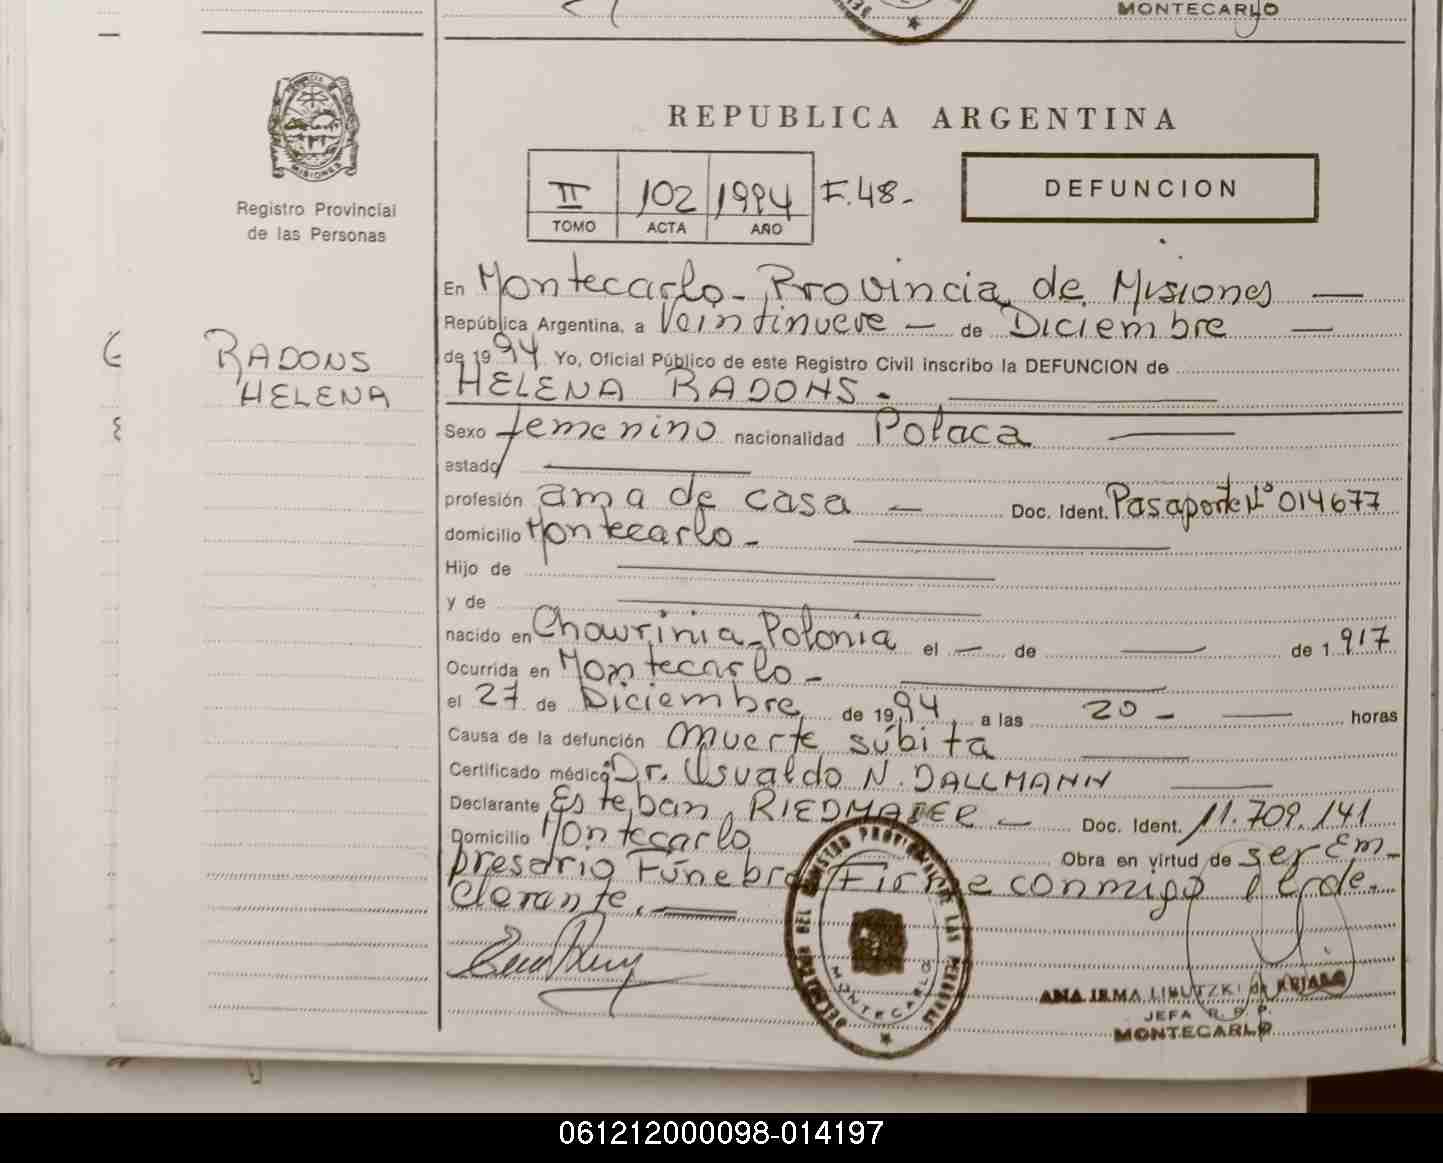 MONTECARLO
REPUBLICA ARGENTINA
II 102 1994 F.48.-
TOMO ACTA AÑO
DEFUNCION
PROVINCIA
MISIONES
Registro Provincial
de las Personas
RADONS
HELENA
En Montecarlo - Provincia de Misiones —
República Argentina, a Veintinueve — de Diciembre —
de 1994 Yo, Oficial Público de este Registro Civil inscribo la DEFUNCION de
HELENA RADONS. —
Sexo femenino nacionalidad Polaca —
estado —
profesión ama de casa — Doc. Ident. Pasaporte Nº 014677
domicilio Montecarlo - —
Hijo de —
y de —
nacido en Polonia el — de — de 1917
Ocurrida en Montecarlo - —
el 27 de Diciembre de 1994, a las 20 - — horas
Causa de la defunción muerte súbita —
Certificado médico Dr. Osvaldo N. DALLMANN —
Declarante Esteban RIEDMAIER — Doc. Ident. 11.709.141
Domicilio Montecarlo Obra en virtud de ser Em-
presario Fúnebre Firma conmigo el de-
clarante. —
REGISTRO PROVINCIAL DE LAS PERSONAS
MONTECARLO
ANA IRMA LIBUTZKI de
JEFA R. P. P.
MONTECARLO
061212000098-014197